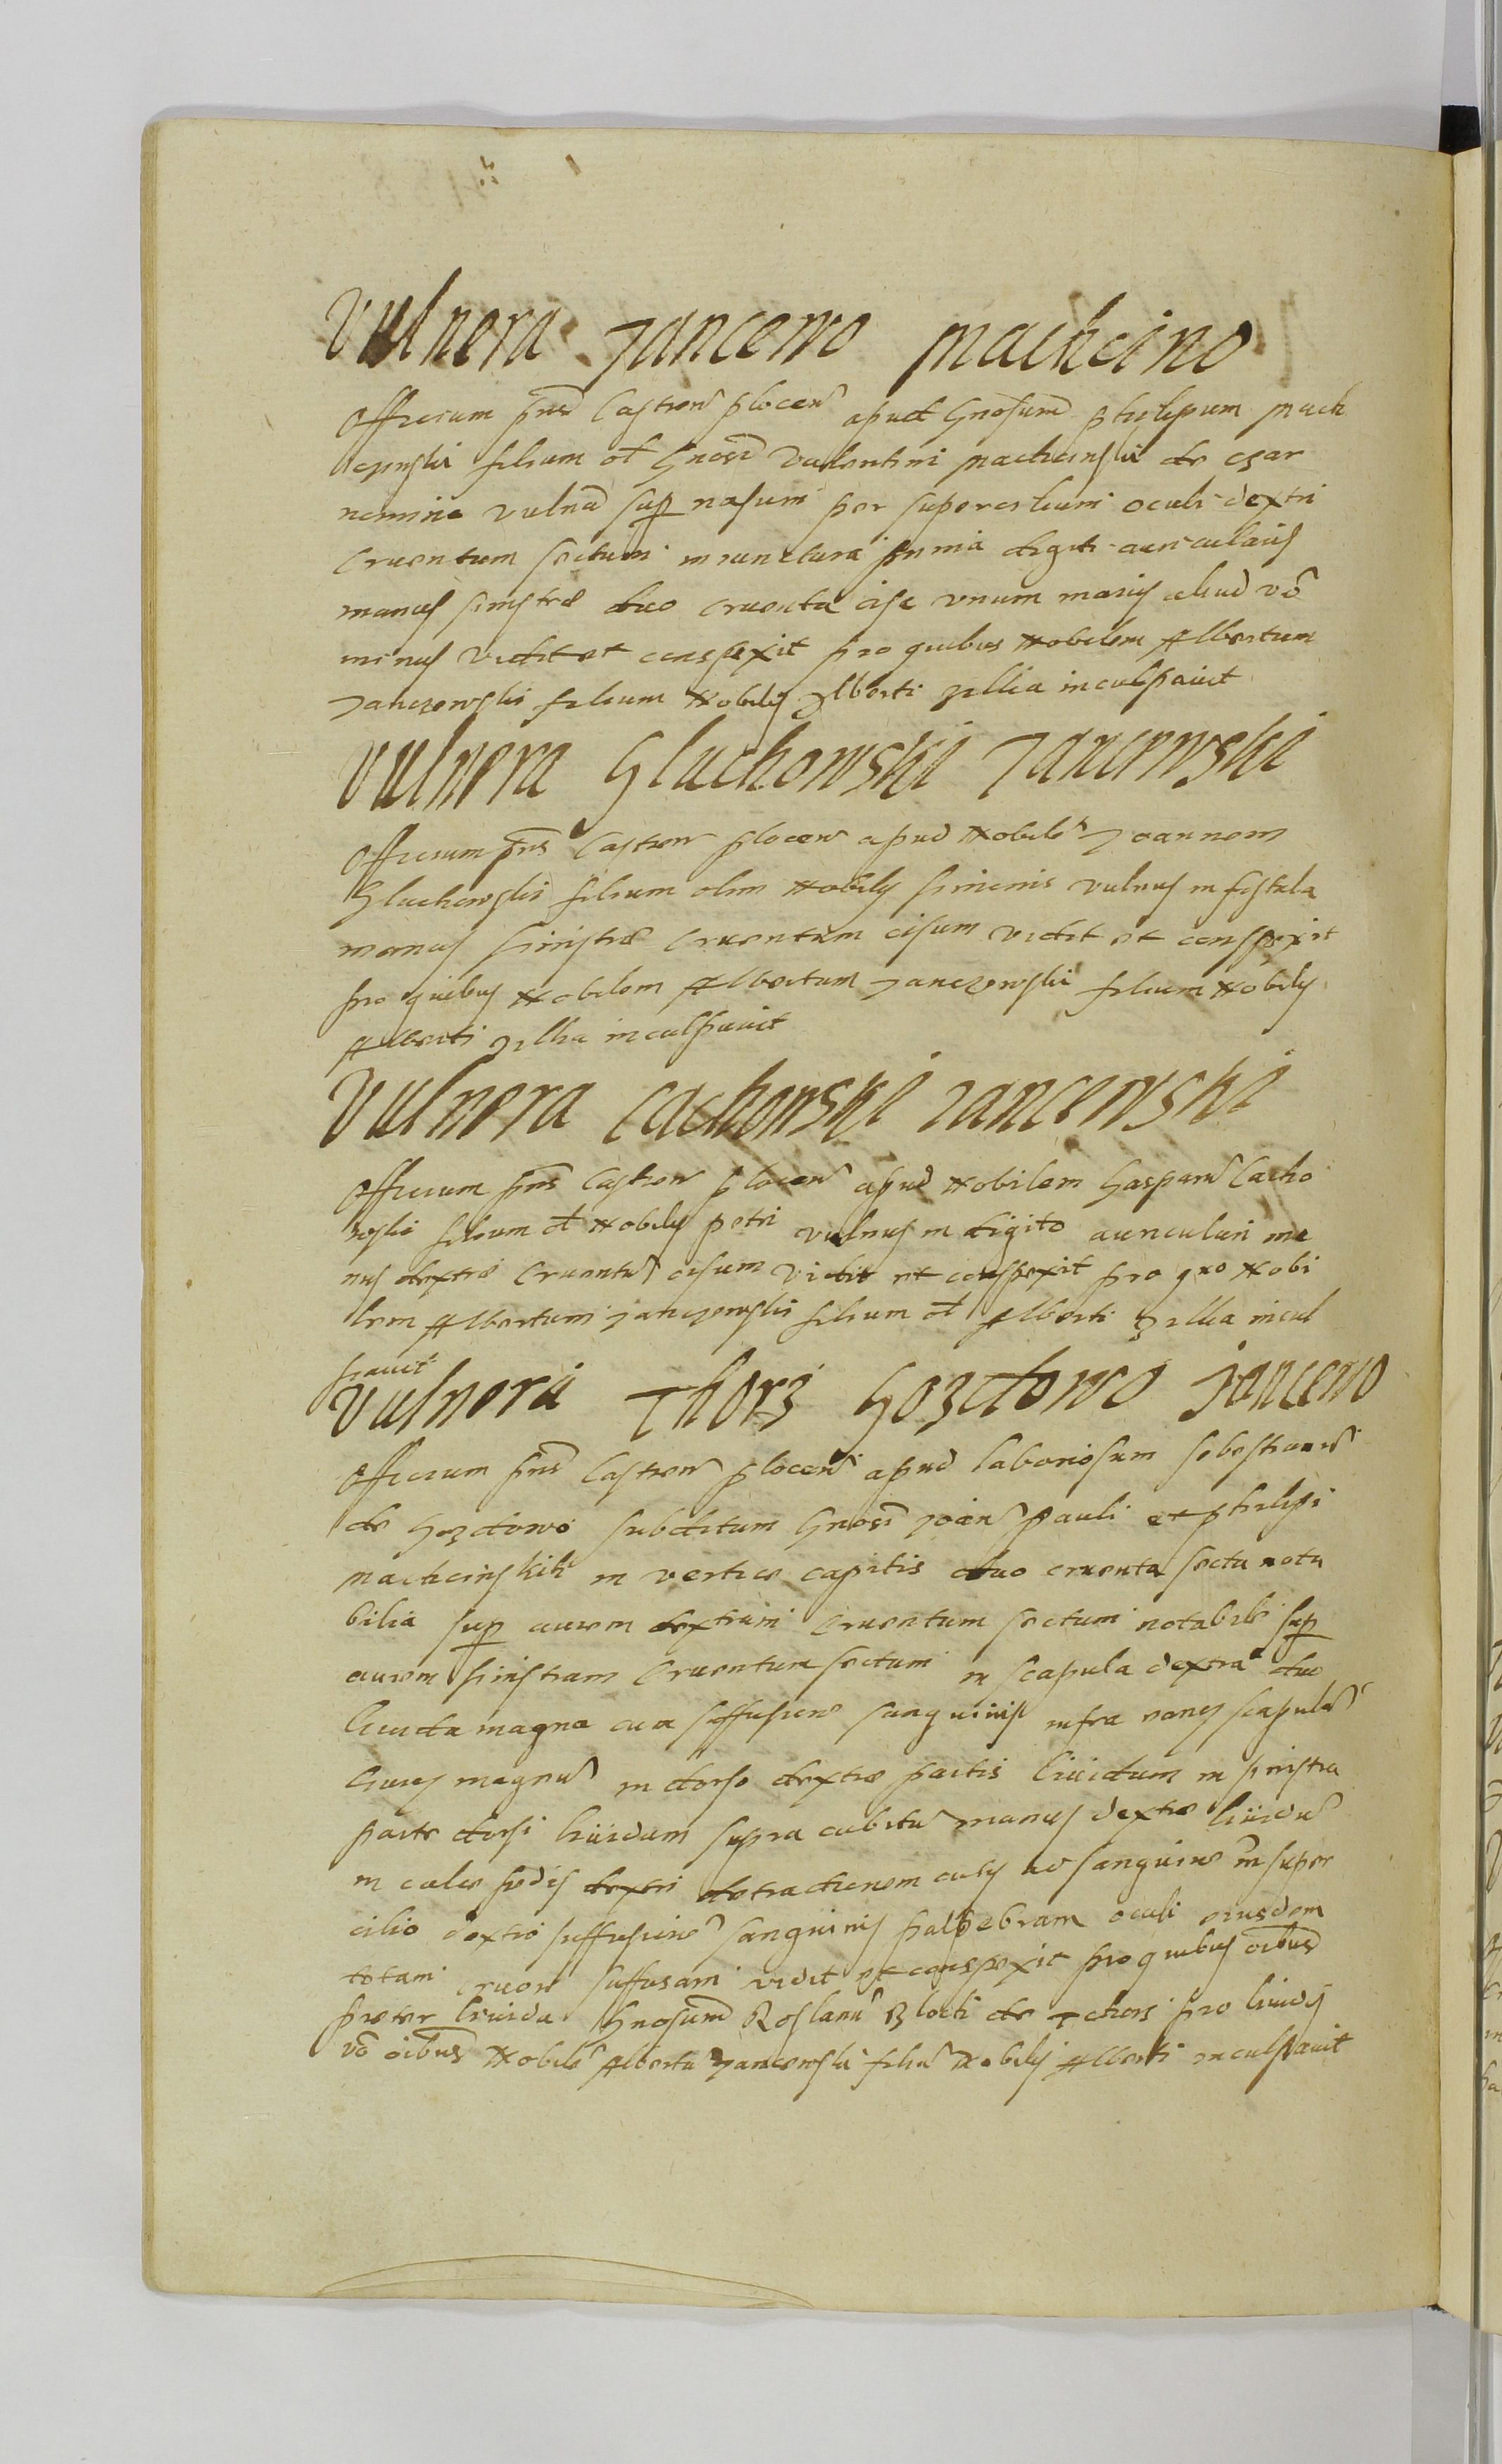 Vulnera Jancewo Machcino
Officium pns̄ Castren̄ plocen̄ apud Gnosum̄ philipum Mach
cpnski filium ol̄ Gnosi̅ Valentini Machcinski de czar
nemino vulnā sup̱ nasum per supercilium oculi dextri
cruentum sectum in iunctura prima digiti auricularis
manus sinistræ duo cruenta cisa unum maius aliud vō
minus vidit et conspexit pro quibus Nobilem Albertum
Janczewski filium Nobilis Alberti zellia inculpauit
Vulnera Gluchowski Jancewski
Officium pns̄ Castren̄ plocen̄ apud Nobilē Joannem
Gluchowski filium olim Nobilis Simonis vulnus in fistula
manus sinistræ cruentum cisum vidit et conspexit
pro quibus Nobilem Albertum Janczewski filium Nobilis
Alberti zellia inculpauit
Vulnera Cachowski Jancewski
Officium pns̄ Castren̄ plocen̄ apud Nobilem Gasparū Cacho
wski filium ol̄ Nobilis Petri vulnus in digito auriculari ma
nus dextræ cruentū cisum vidit et conspexit pro quo Nobi
lem Albertum Janczewski filium ol̄ Alberti zellia incul
pauit
Vulnera Thorz Gozdowo Jancewo
Officium pns̄ Castren̄ plocen̄ apud laboriosum Sebestianū
de Gozdowo subditum Gnosi̅ Joan̄ Pauli et philipi
Machcinskich in vertice capitis duo cruenta secta nota
bilia sup̱ aurem dextram cruentum sectum notabile sup̱
aurem sinistram cruentum sectum in scapula dextra duo
liuida magna cum suffusione sanguinis infra scapulā
magnū in dorso dextræ partis liuidum in sinistra
parte dorsi liuidum supra cubitū manus dextræ liuidū
in calce pedis dextri detractionem cutis ac sanguine in super
cilio dextro suffusionē sanguinis palpebram oculi eiusdem
totam cruore suffusam vidit et conspexit pro quibus oībus
præter liuida Gnosum̄ Roslanū Blocki de Tchorz pro liuidis
vō oībus Nobilē Albertū Jancewski filiū Nobilis Alberti inculpauit